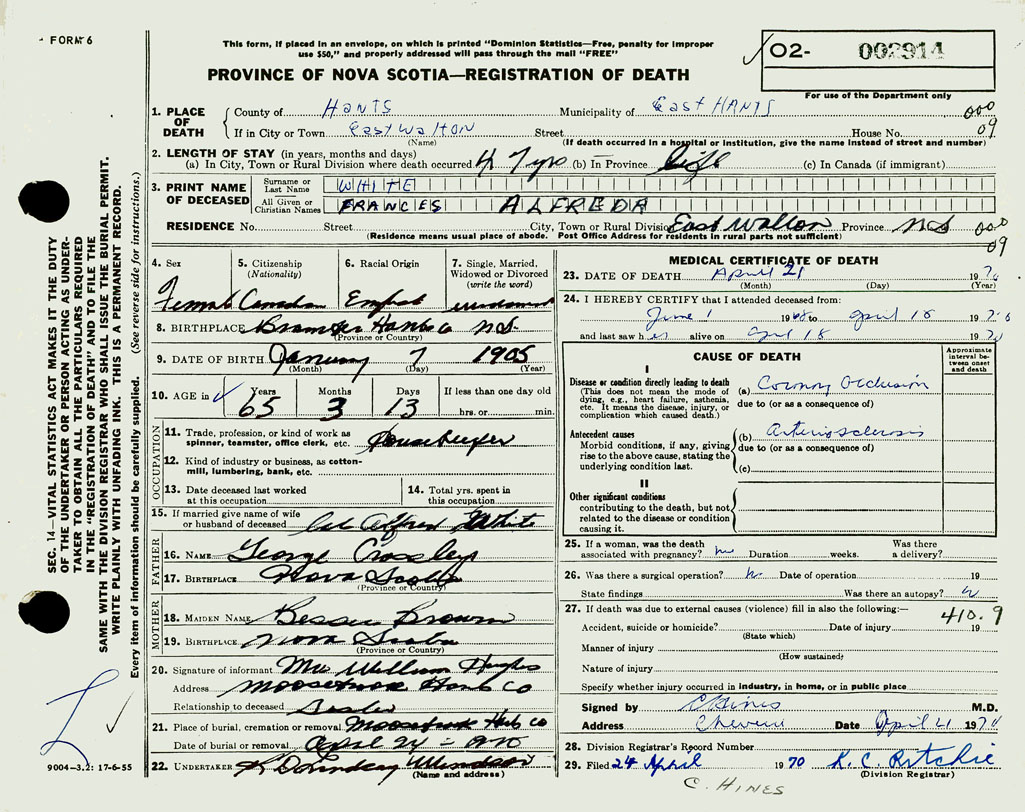 FORM 6
This form, if placed in an envelope, on which is printed "Dominion Statistics—Free, penalty for improper
use $50," and properly addressed will pass through the mail "FREE"
O2- 002914
For use of the Department only
PROVINCE OF NOVA SCOTIA—REGISTRATION OF DEATH
1. PLACE OF DEATH
County of HANTS Municipality of East HANTS 000
If in City or Town East WALTON Street House No. 09
(Name) (If death occurred in a hospital or institution, give the name instead of street and number)
2. LENGTH OF STAY (in years, months and days)
(a) In City, Town or Rural Division where death occurred 47 yrs (b) In Province life (c) In Canada (if immigrant)
3. PRINT NAME OF DECEASED
Surname or Last Name WHITE
All Given or Christian Names FRANCES ALFREDA
RESIDENCE No. Street City, Town or Rural Division East Walton Province NS 000
09
(Residence means usual place of abode. Post Office Address for residents in rural parts not sufficient)
SEC. 14—VITAL STATISTICS ACT MAKES IT THE DUTY
OF THE UNDERTAKER OR PERSON ACTING AS UNDER-
TAKER TO OBTAIN ALL THE PARTICULARS REQUIRED
IN THE "REGISTRATION OF DEATH" AND TO FILE THE
SAME WITH THE DIVISION REGISTRAR WHO SHALL ISSUE THE BURIAL PERMIT.
WRITE PLAINLY WITH UNFADING INK. THIS IS A PERMANENT RECORD.
Every item of information should be carefully supplied. (See reverse side for instructions.)
4. Sex
Female
5. Citizenship (Nationality)
Canadian
6. Racial Origin
English
7. Single, Married, Widowed or Divorced (write the word)
widowed
8. BIRTHPLACE Hants Co NS.
(Province or Country)
9. DATE OF BIRTH January 7 1905
(Month) (Day) (Year)
10. AGE in
Years Months Days If less than one day old
65 3 13 hrs. or min.
OCCUPATION
11. Trade, profession, or kind of work as
spinner, teamster, office clerk, etc. Housekeeper
12. Kind of industry or business, as cotton-
mill, lumbering, bank, etc.
13. Date deceased last worked
at this occupation
14. Total yrs. spent in
this occupation
15. If married give name of wife
or husband of deceased Alfred White
FATHER
16. NAME George Crossley
17. BIRTHPLACE Nova Scotia
(Province or Country)
MOTHER
18. MAIDEN NAME Bessie Brown
19. BIRTHPLACE Nova Scotia
(Province or Country)
20. Signature of informant Mrs William Hughes
Address Moosebrook Hants Co
Relationship to deceased Sister
21. Place of burial, cremation or removal Moosebrook Hants Co
Date of burial or removal April 24 - 1970
22. UNDERTAKER K D Lindsay Windsor
(Name and address)
9004-3.2: 17-6-55
MEDICAL CERTIFICATE OF DEATH
23. DATE OF DEATH April 21 1970
(Month) (Day) (Year)
24. I HEREBY CERTIFY that I attended deceased from:
June 1 1968 to April 18 1970
and last saw her alive on April 18 1970
CAUSE OF DEATH
Approximate interval between onset and death
I
Disease or condition directly leading to death
(This does not mean the mode of
dying, e.g., heart failure, asthenia,
etc. It means the disease, injury, or
complication which caused death.)
(a) Coronary Occlusion
due to (or as a consequence of)
Antecedent causes
Morbid conditions, if any, giving
rise to the above cause, stating the
underlying condition last.
(b) Arteriosclerosis
due to (or as a consequence of)
(c)
II
Other significant conditions
contributing to the death, but not
related to the disease or condition
causing it.
25. If a woman, was the death
associated with pregnancy? no Duration weeks. Was there
a delivery?
26. Was there a surgical operation? no Date of operation 19
State findings Was there an autopsy?
27. If death was due to external causes (violence) fill in also the following:— 410.9
Accident, suicide or homicide? Date of injury 19
(State which)
Manner of injury
(How sustained)
Nature of injury
Specify whether injury occurred in industry, in home, or in public place
Signed by C Hines M.D.
Address Cheverie Date April 21 1970
28. Division Registrar's Record Number
29. Filed 24 April 1970 K. C. Ritchie
(Division Registrar)
C. HINES